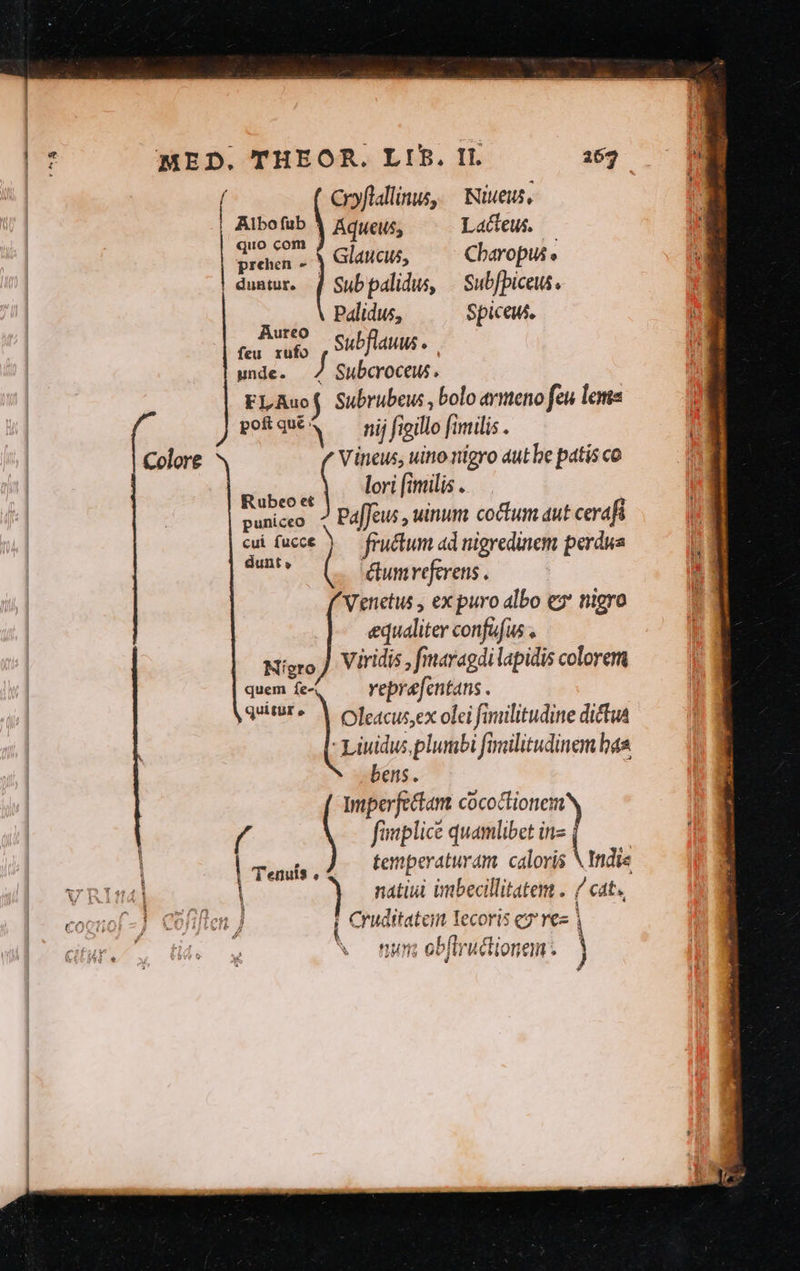 MED. THEOR. LIB. II. 267
Cryſtallinus, Niueus,
Albo ſub Aqueus, Lacteus.
quo com
prehen - Glaucus, Charopus.
duntur. Sub palidus, Subſpiceus.
Palidus, Spiceus.
Aureo
ſeu rufo Subflauus.
unde. Subcroceus.
FLAuo Subrubeus, bolo armeno ſeu lem=
poſt quē nij ſigillo ſimilis.
Colore Vineus, uino nigro aut hepatis co
lori ſimilis.
Rubeo et
puniceo Paſſeus, uinum coctum aut ceraſi
cui ſucce fructum ad nigredinem perdu=
dunt, ctum referens.
Venetus, ex puro albo & nigro
equaliter confuſus.
Nigro Viridis, ſmaragdi lapidis colorem
quem ſe- repræſentans.
quitur. Oleaceus, ex olei ſimilitudine dictus
Liuidus, plumbi ſimilitudinem ha=
bens.
Imperfectam cōcoctionem
ſimplicē quamlibet in=
Tenuis. temperaturam caloris Indi=
VRIna natiui imbecillitatem. cat.
cognoſ- Cōſiſten Cruditatem Iecoris & re=
citur. tia. num obſtructionem.